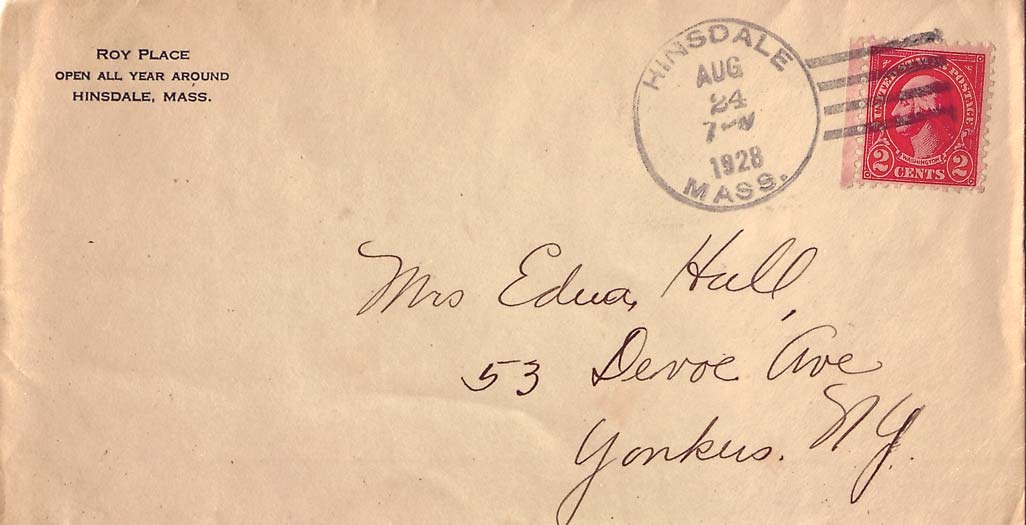 ROY PLACE
OPEN ALL YEAR AROUND
HINSDALE, MASS.
HINSDALE
AUG
24
1928
MASS.
UNITED STATES POSTAGE
WASHINGTON
2 CENTS 2
Mrs Edna Hall,
53 Devoe Ave
Yonkers. N.Y.